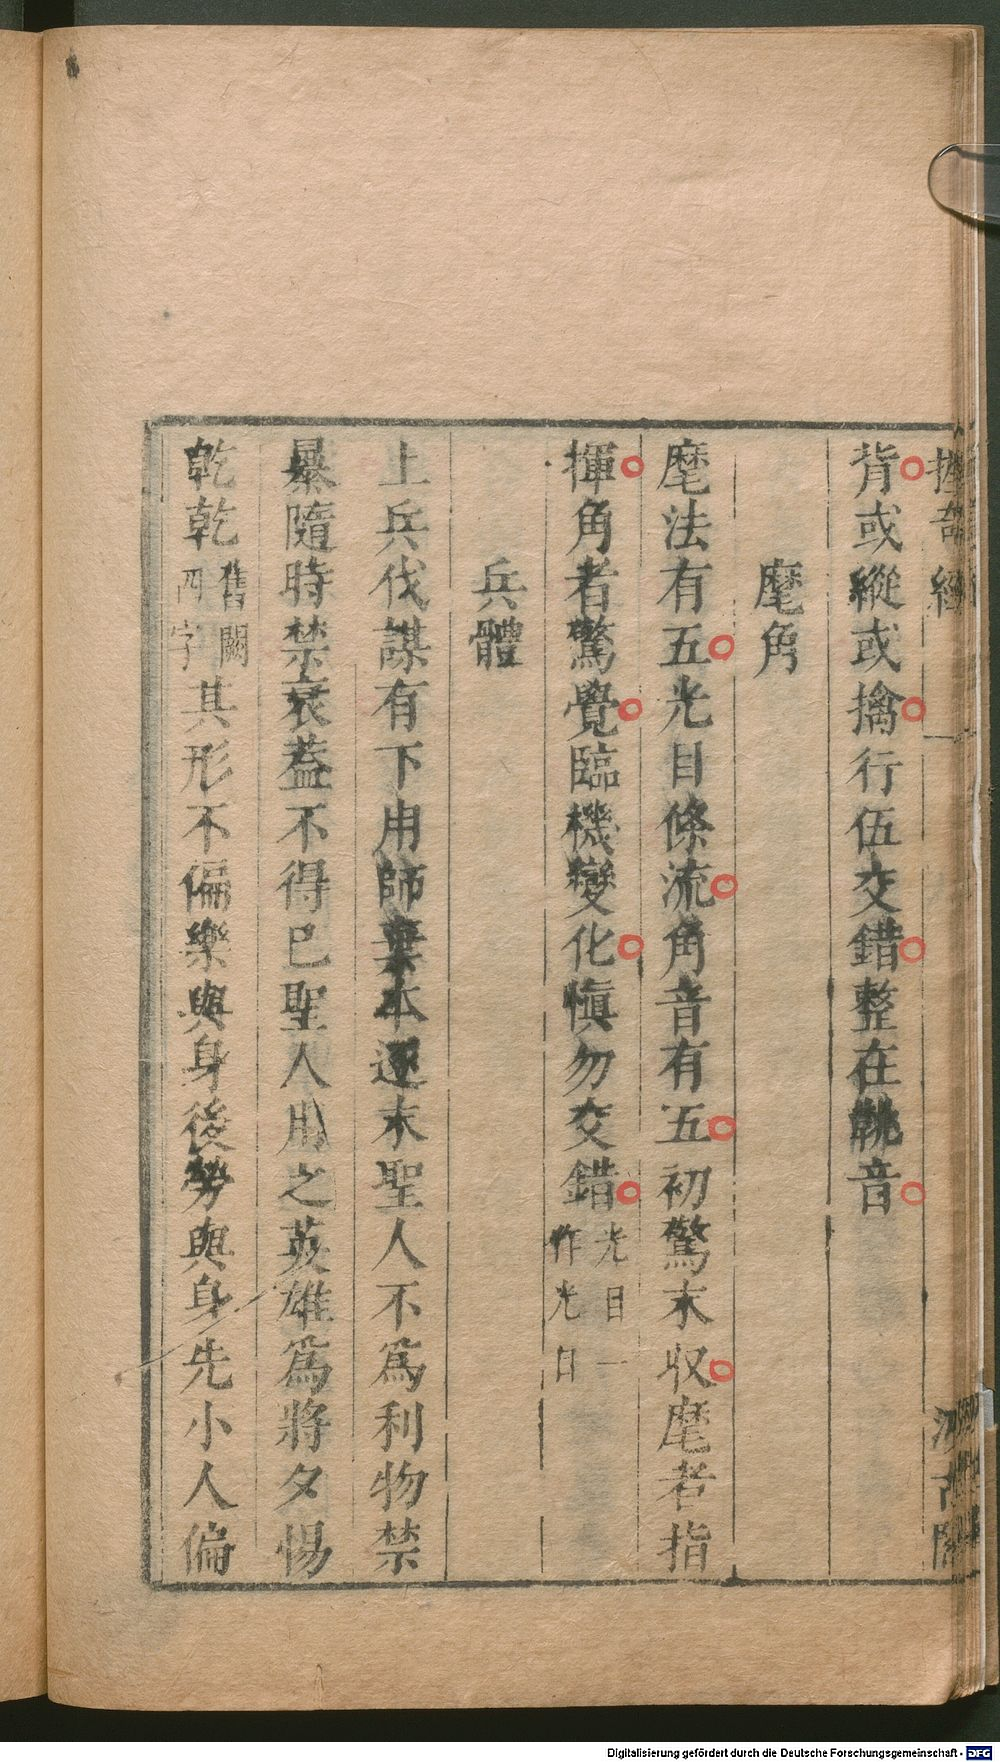 握奇經
汲古閣
背或縱或擒行伍交錯整在鞉音
麾角
麾法有五光目條流角音有五初驚末収麾者指
揮角者驚覺臨機變化愼勿交錯光目一作光日
兵體
上兵伐謀有下用師棄本逐末聖人不爲利物禁
暴隨時禁衰葢不得巳聖人用之英雄爲將夕惕
乾乾舊闕四字其形不偏樂與身後勞與身先小人偏
Digitalisierung gefördert durch die Deutsche Forschungsgemeinschaft - DFG